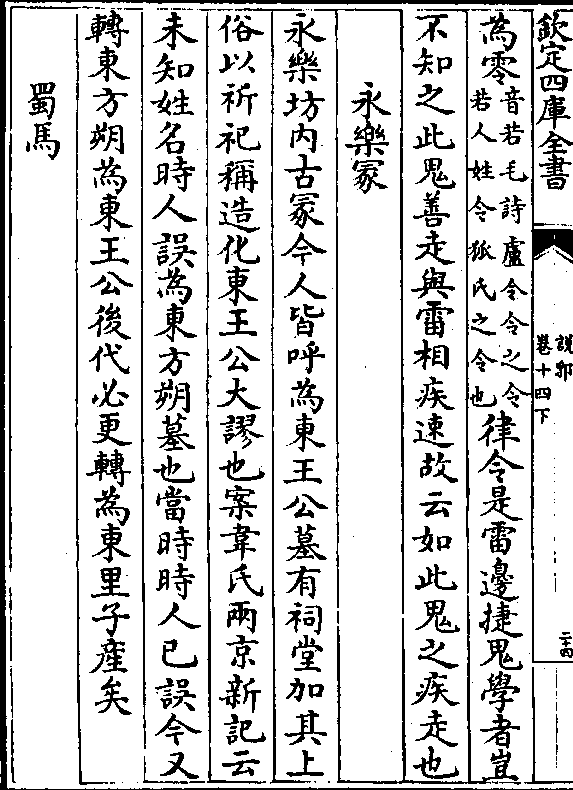 欽定四庫全書
說郛
卷十四下
二十四
為零音若毛詩盧令令之令
若人姓令狐氏之令也律令是雷邊捷鬼學者豈
不知之此鬼善走與雷相疾速故云如此鬼之疾走也
永樂冢
永樂坊内古冢今人皆呼為東王公墓有祠堂加其上
俗以祈祀稱造化東王公大謬也案韋氏兩京新記云
未知姓名時人誤為東方朔墓也當時時人已誤今又
轉東方朔為東王公後代必更轉為東里子產矣
蜀馬